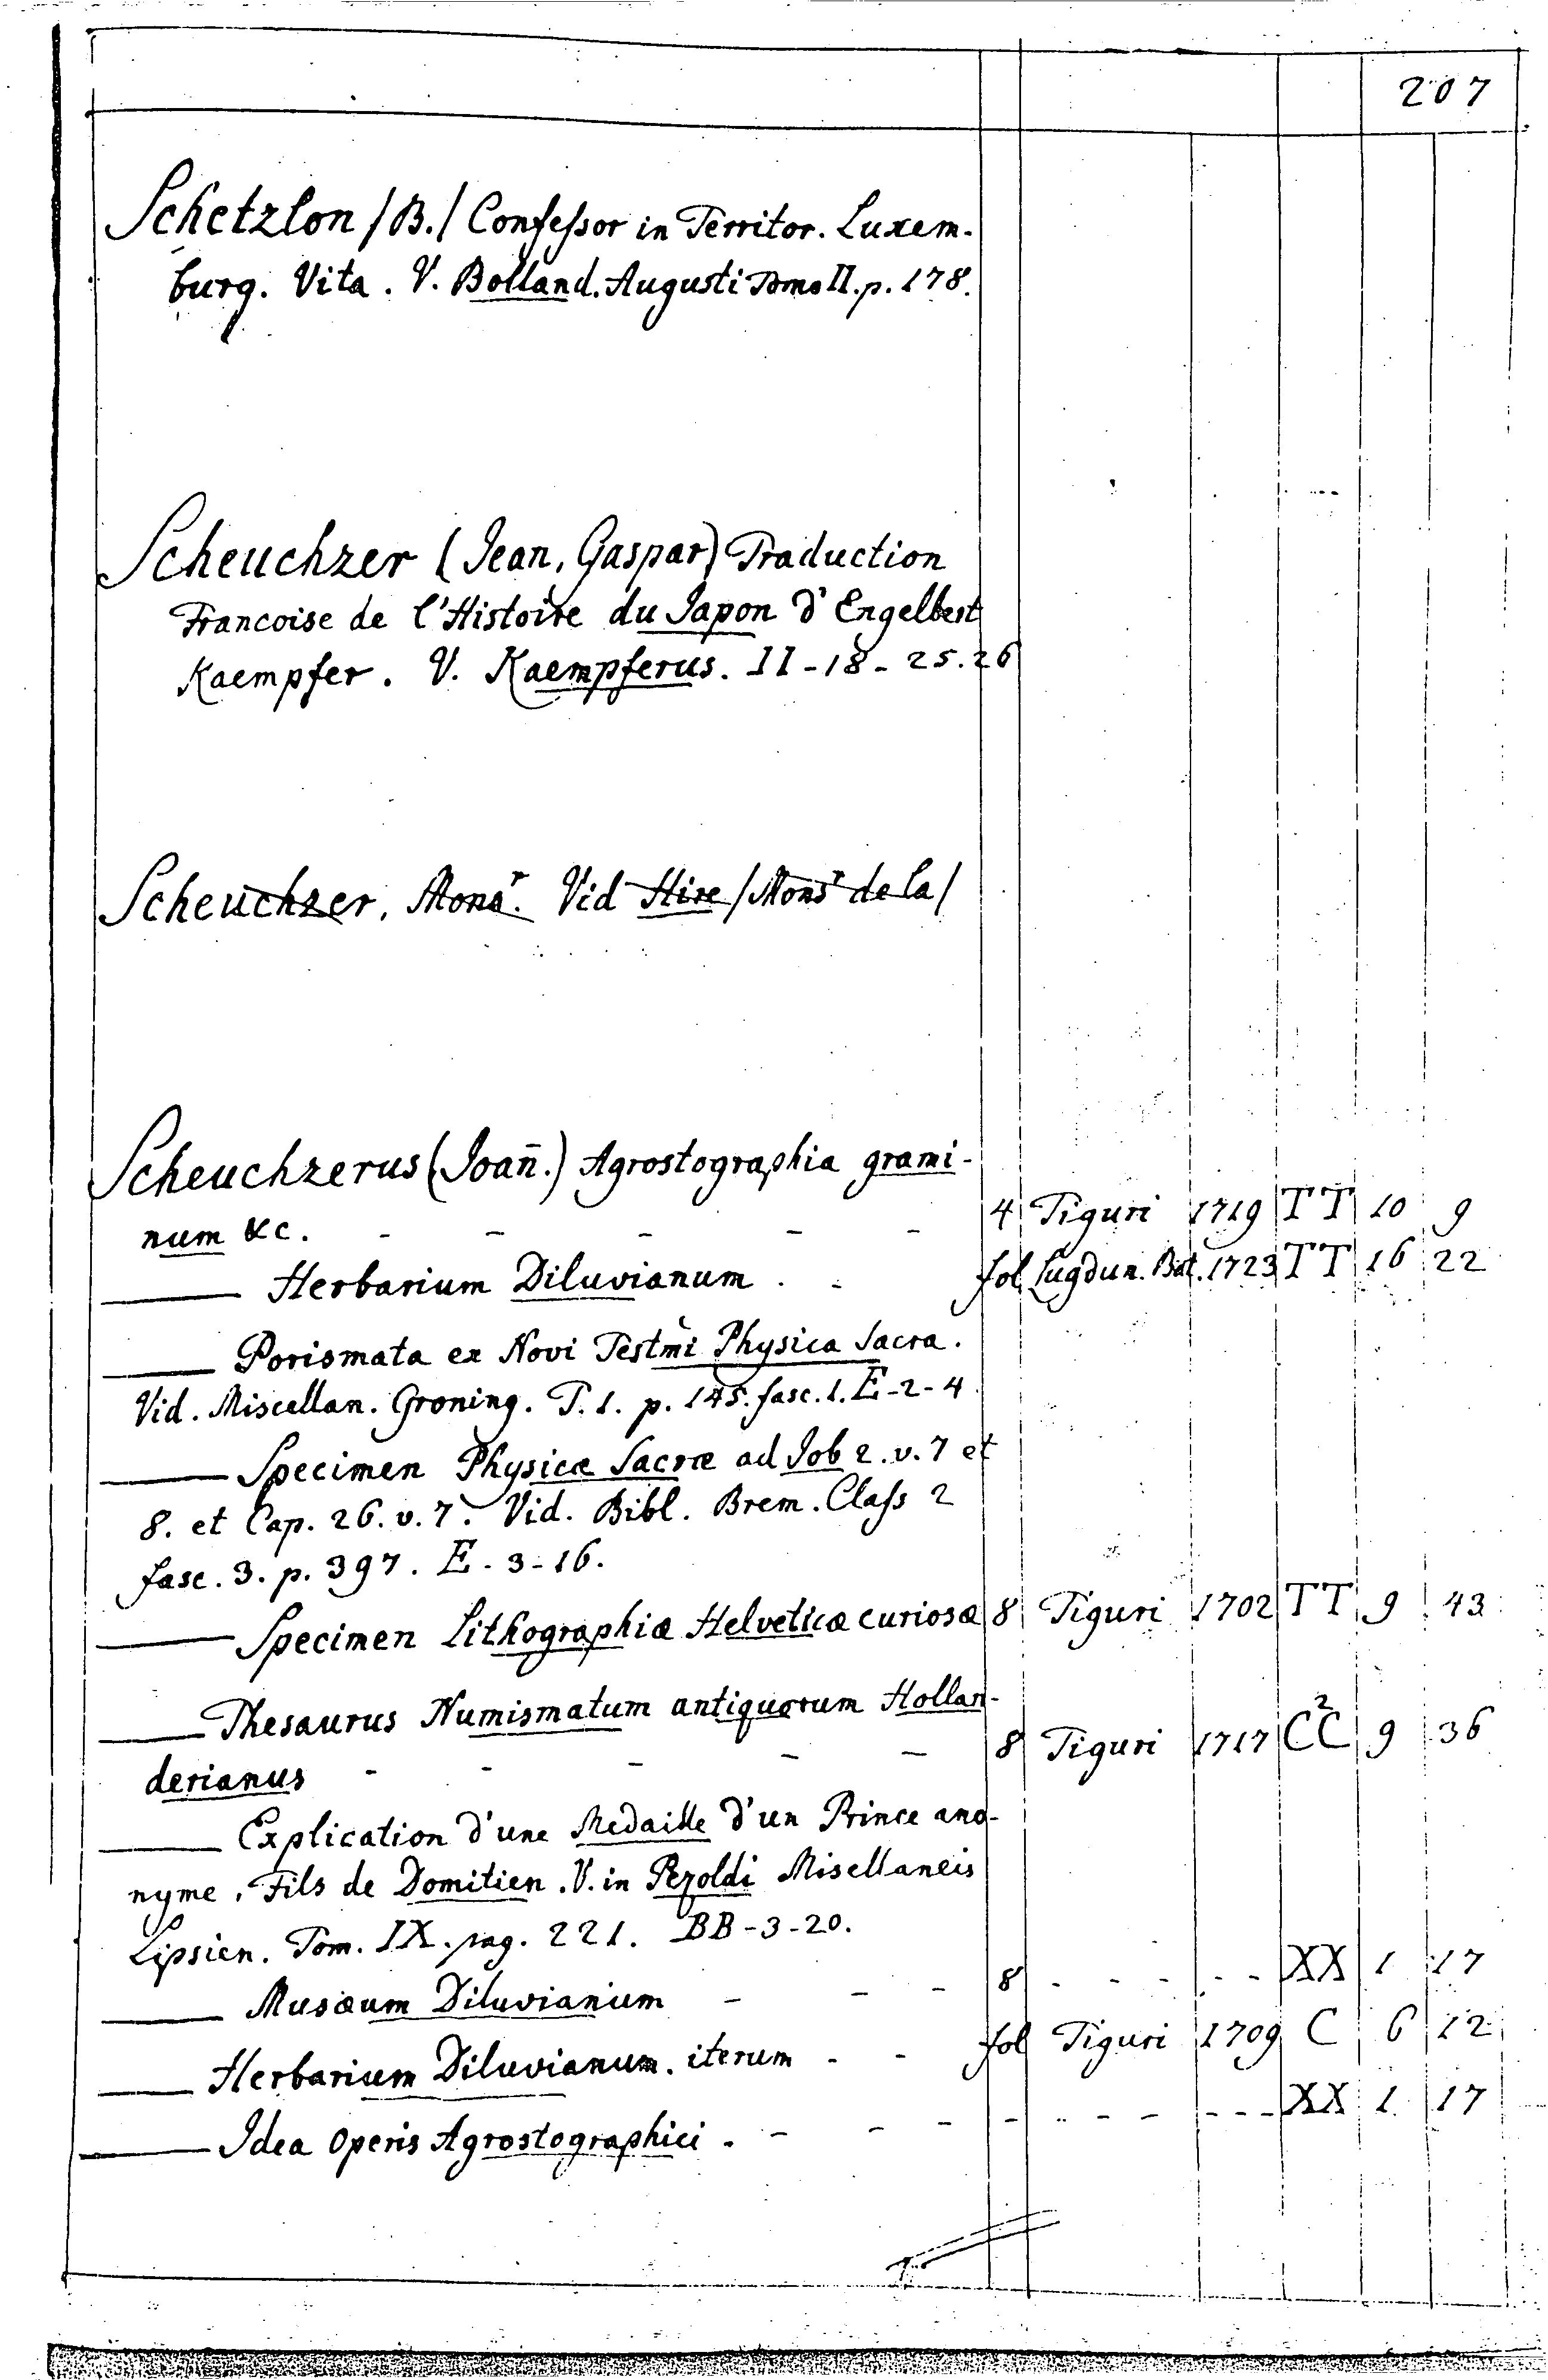 207
Schetzlon /B./ Confessor in Territor. Luxem-
burg. Vita. V. Bolland. Augusti Tomo II. p. 178.
Scheuchzer (Jean, Gaspar) Traduction
Francoise de l'Histoire du Japon d'Engelbert
Kaempfer. V. Kaempferus. II-18-25.26
Scheuchzer, Monsr. Vid Hire /Monsr de la/
Scheuchzerus (Joan̄.) Agrostographia grami-
num &c. - - - - - 4 Tiguri 1719 TT 10 9
——— Herbarium Diluvianum . - fol Lugdun. Bat. 1723 TT 16 22
——— Porismata ex Novi Testmi Physica Sacra.
Vid. Miscellan. Groning. T. 1. p. 145. fasc. 1. E-2-4
——— Specimen Physicæ Sacræ ad Job 2. v. 7 et
8. et Cap. 26. v. 7. Vid. Bibl. Brem. Class 2
fasc. 3. p. 397. E-3-16.
——— Specimen Lithographiæ Helveticæ curiosæ 8 Tiguri 1702 TT 9 43
——— Thesaurus Numismatum antiquorum Hollan-
derianus - - - - - 8 Tiguri 1717 CC2 9 36
——— Explication d'une Medaille d'un Prince ano-
nyme, Fils de Domitien. V. in Pezoldi Misellaneis
Lipsien. Tom. IX. pag. 221. BB-3-20.
——— Musæum Diluvianum - - - 8 - - - - - XX 1 17
——— Herbarium Diluvianum. iterum - - fol Tiguri 1709 C 6 12
——— Idea Operis Agrostographici. - - - - - - - - - - XX 1 17